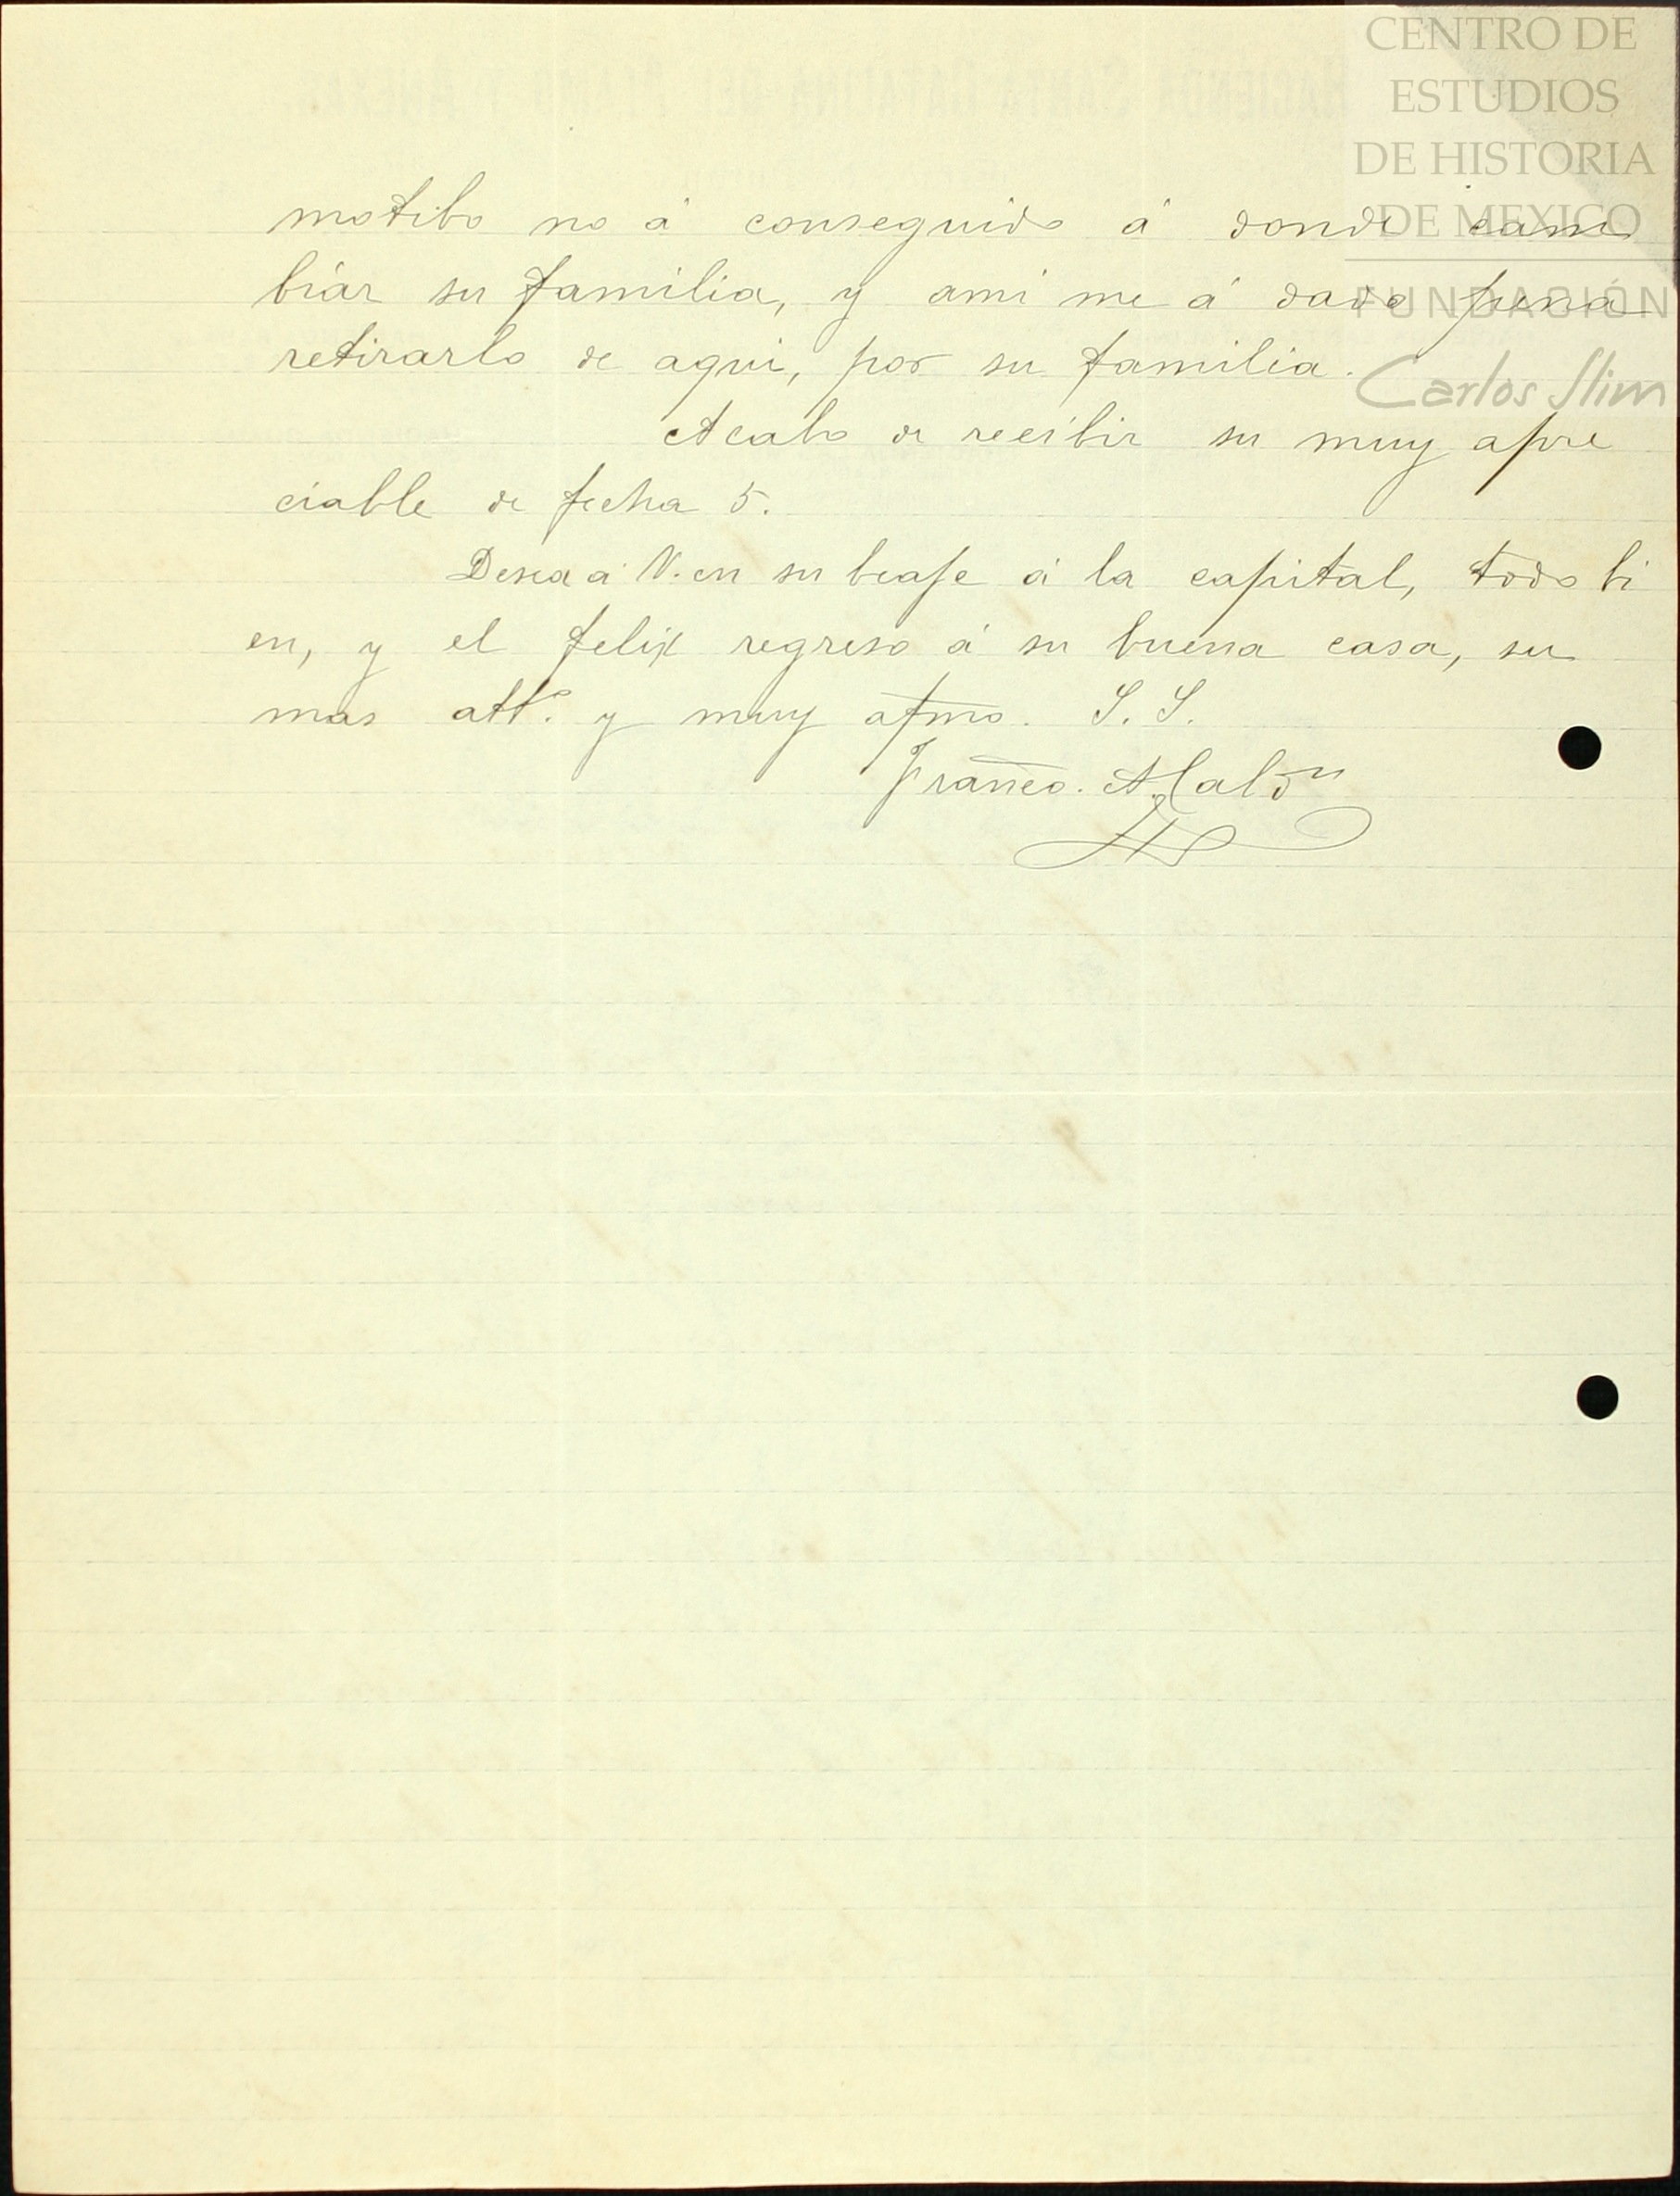 CENTRO DE
ESTUDIOS
DE HISTORIA
DE MEXICO
FUNDACIÓN
Carlos Slim
motibo no á conseguido á donde cam
biar su familia, y ami me á dado pena
retirarlo de aqui, por su familia.
Acabo de recibir su muy apre
ciable de fecha 5.
Desea á V. en su beaje á la capital, todo bi
en, y el felix regreso á su buena casa, su
mas att°. y muy afmo. S. S.
Franco.